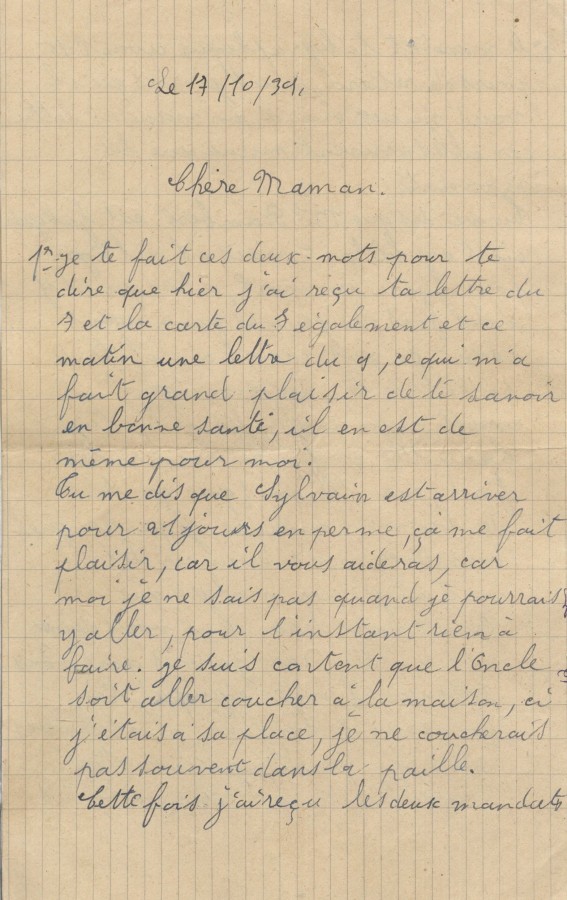 Le 17/10/39.
Chère Maman.
1er je te fait ces deux mots pour te
dire que hier j'ai reçu ta lettre du
7 et la carte du 7 également et ce
matin une lettre du 9, ce qui m'a
fait grand plaisir de te savoir
en bonne santé, il en est de
même pour moi.
Tu me dis que Sylvain est arriver
pour 21 jours en perme, çà me fait
plaisir, car il vous aideras, car
moi je ne sais pas quand je pourrais
y aller, pour l'instant rien à
faire. je suis content que l'Oncle
soit aller coucher à la maison, ci
j'étais à sa place, je ne coucherais
pas souvent dans la paille.
Cette fois j'ai reçu les deux mandats